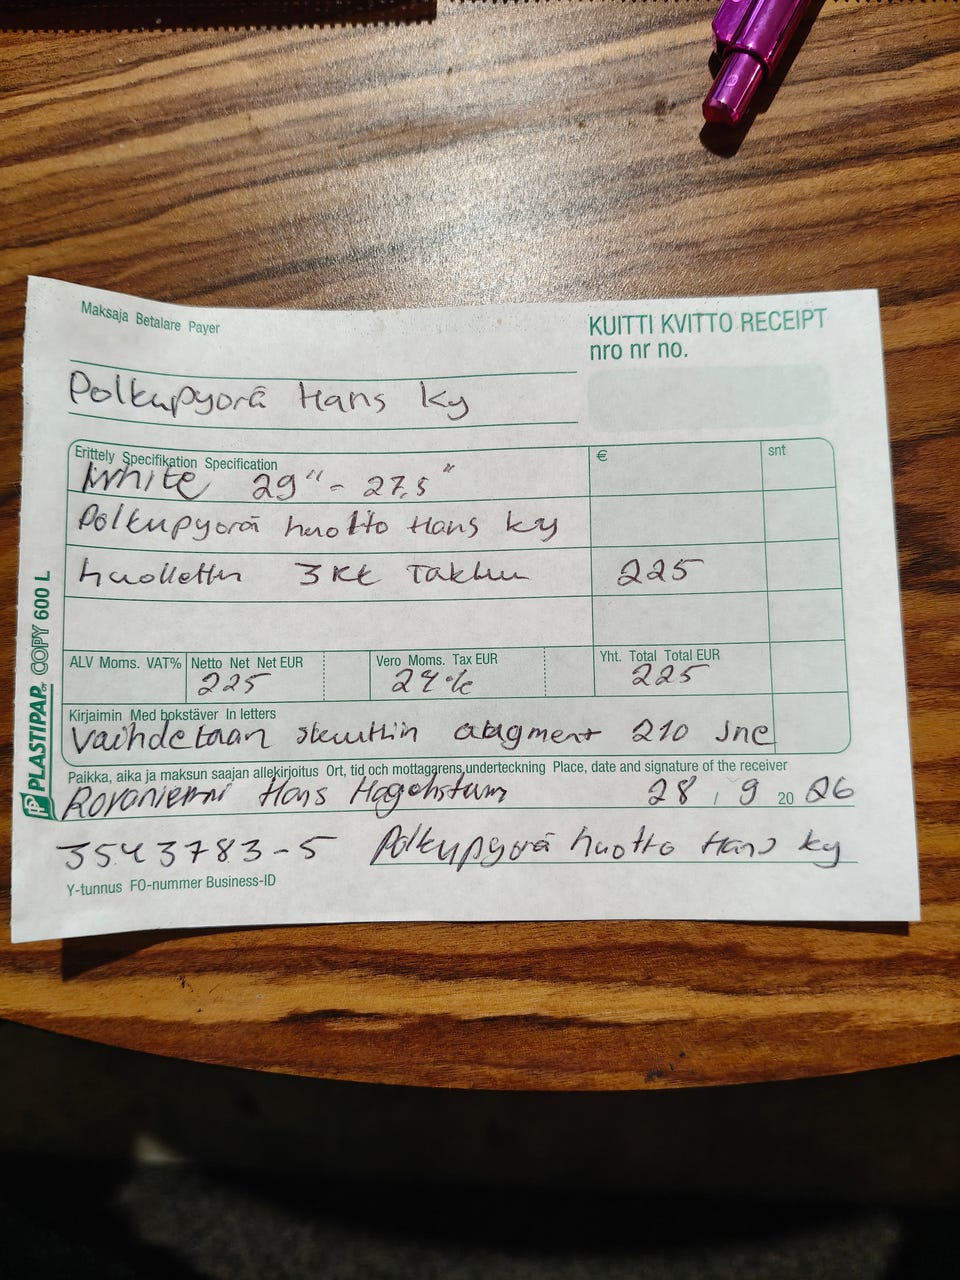 Maksaja Betalare Payer
KUITTI KVITTO RECEIPT
nro nr no.
Polkupyörä Hans Ky
Erittely Spesifikation Specification
€
snt
White 29" - 27,5"
Polkupyörä huolto Hans ky
huollettu 3 kk Takuu 225
ALV Moms. VAT%
Netto Net Net EUR
Vero Moms. Tax EUR
Yht. Total Total EUR
225 24% 225
Kirjaimin Med bokstäver In letters
Vaihdetaan skuuttiin 210 Jne
Paikka, aika ja maksun saajan allekirjoitus Ort, tid och mottagarens underteckning Place, date and signature of the receiver
Rovaniemi Hans 28 / 9 20 26
3543783-5 Polkupyörä huolto Hans ky
Y-tunnus FO-nummer Business-ID
PLASTIPAP OY COPY 600 L